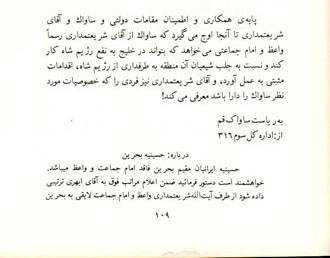 پایه‌ی همکاری و اطمینان مقامات دولتی و ساواك و آقای
شریعتمداری تا آنجا اوج می‌گیرد که ساواك از آقای شریعتمداری رسماً
واعظ و امام جماعتی می‌خواهد که بتواند در خلیج به نفع رژیم شاه کار
کند و نسبت به جلب شیعیان آن منطقه به طرفداری از رژیم شاه، اقدامات
مثبتی به عمل آورد، و آقای شریعتمداری نیز فردی را که خصوصیات مورد
نظر ساواك را دارا باشد معرفی می‌کند!
به ریاست ساواك قم
از: اداره کل سوم ۳۱۶
درباره: حسینیه بحرین
حسینیه ایرانیان مقیم بحرین فاقد امام جماعت و واعظ میباشد.
خواهشمند است دستور فرمائید ضمن اعلام مراتب فوق به آقای ابهری ترتیبی
داده شود از طرف آیت‌الله شریعتمداری واعظ و امام جماعت لایقی به بحرین
۱۰۹